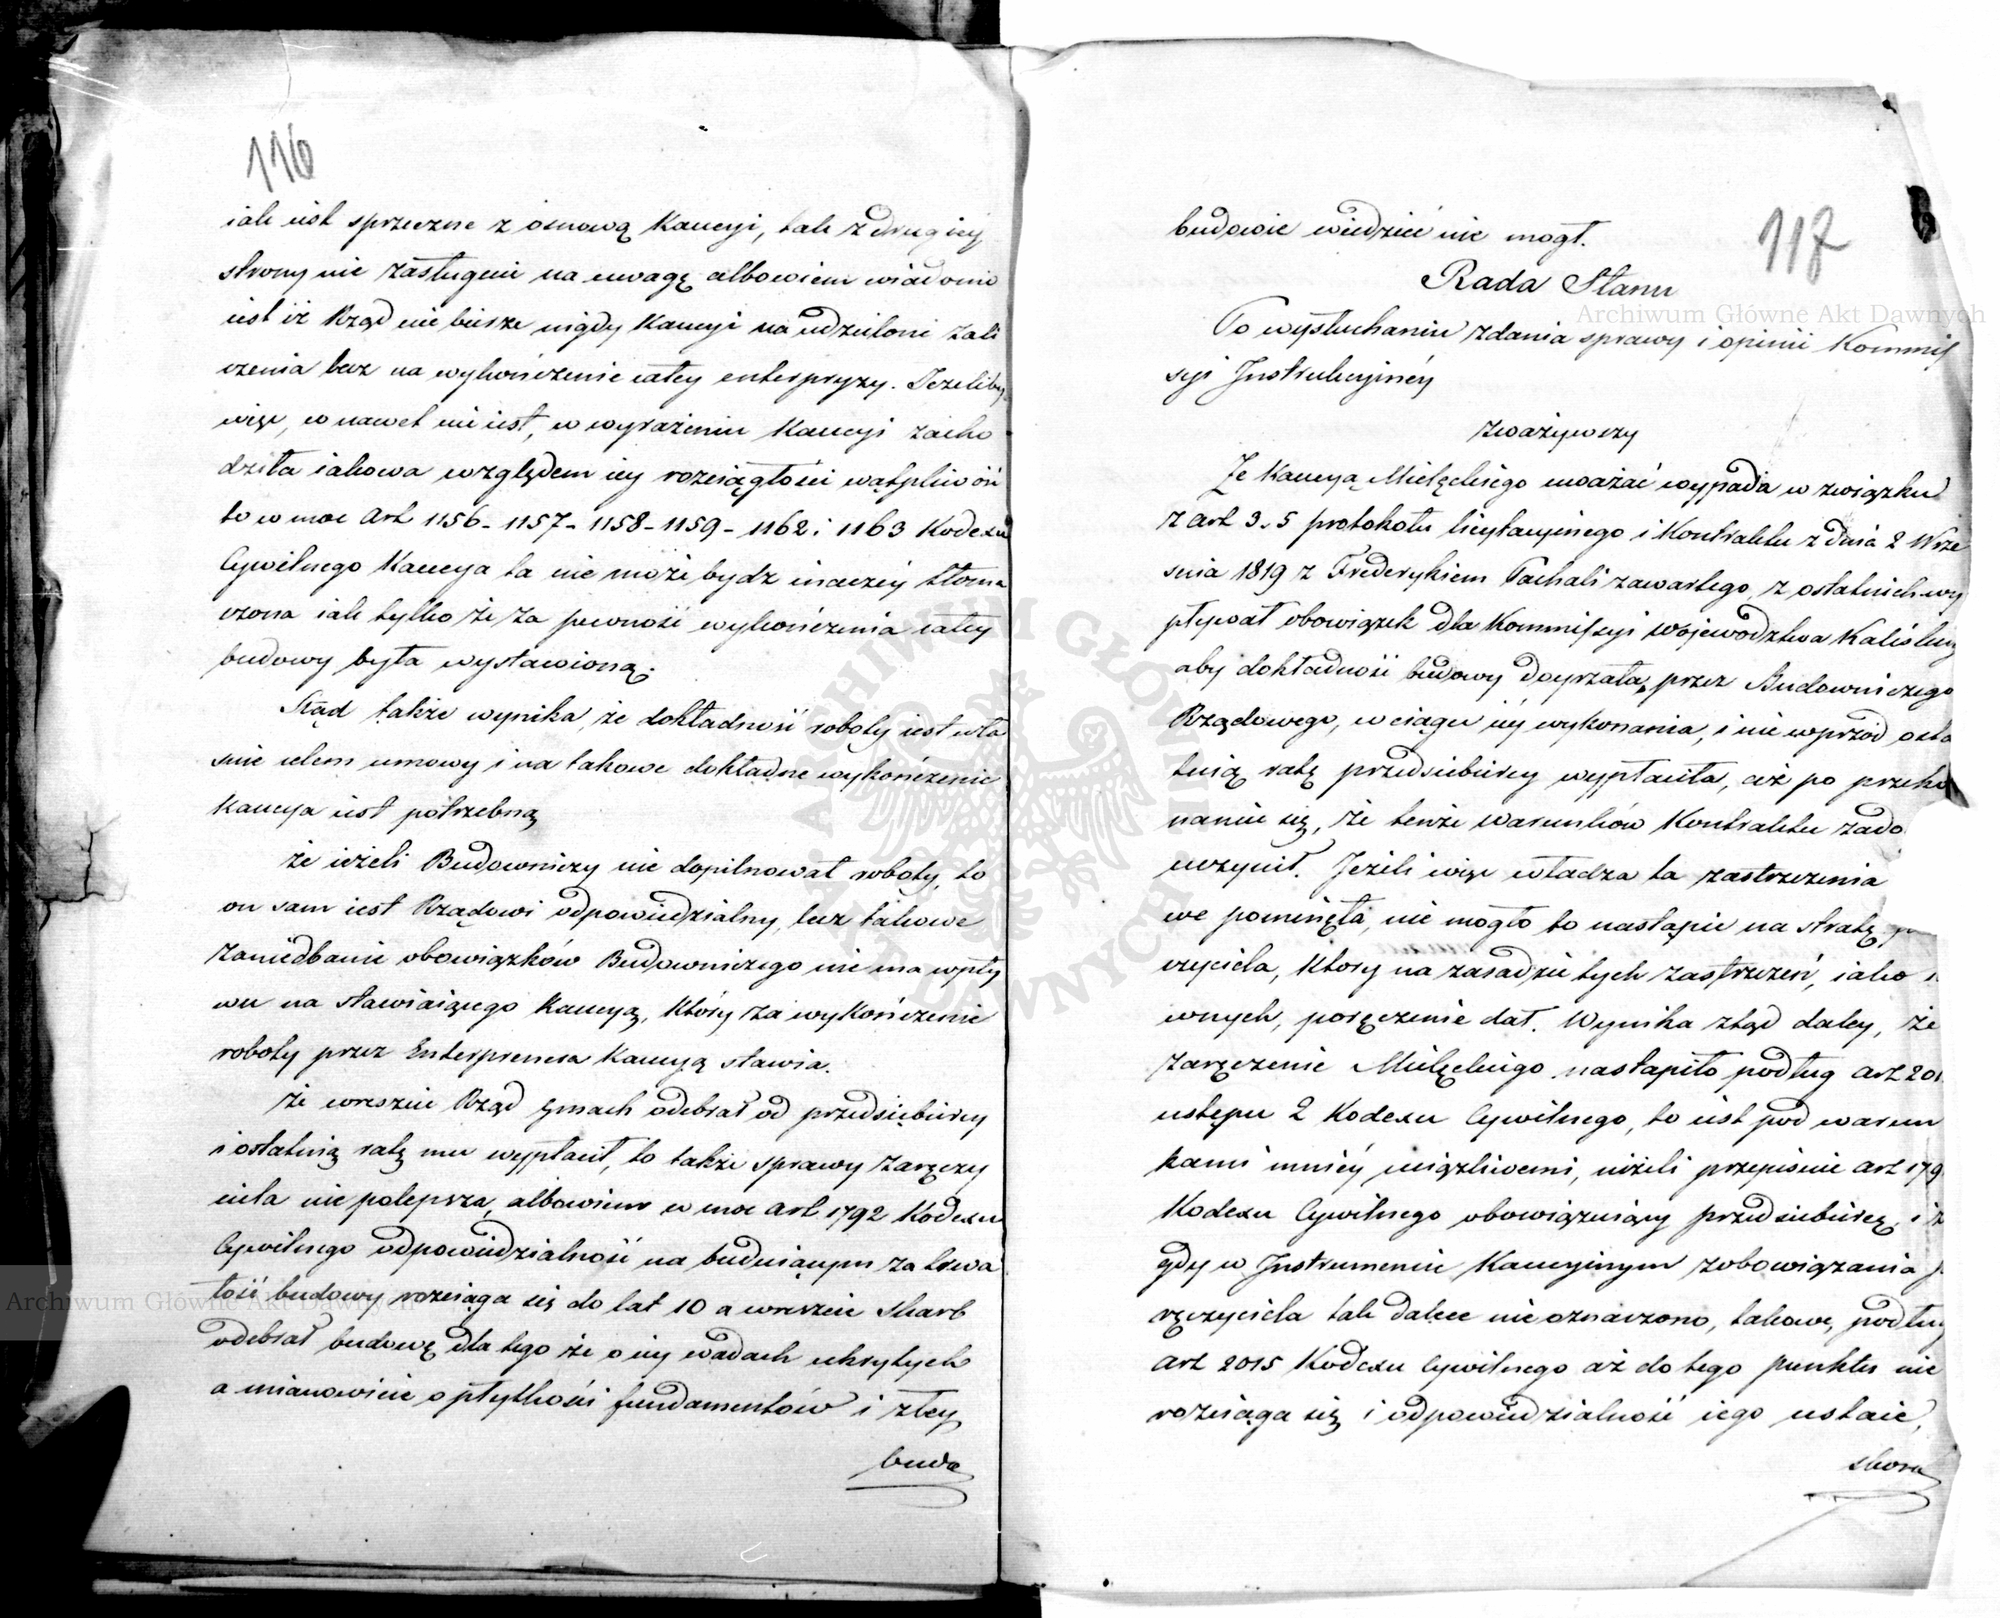 116
iak iest sprzeczne z osnową Kaucyi, tak z drugiey
strony nie zasługuie na uwagę albowiem wiadomo
iest iż Rząd nie bierze nigdy Kaucyi na udzielone zali
czenia lecz na wykończenie całey enterpryzy. Jeżeliby
więc, co nawet nie iest, w wyrażeniu Kaucyi zacho
dziła iakowa względem iey rozciągłości wątpliwość
to w moc Art 1156 - 1157 - 1158 - 1159 - 1162 i 1163 Kodexu
Cywilnego Kaucya ta nie może bydź inaczey tłoma
czona iak tylko że za pewność wykończenia całey
budowy była wystawioną.
Stąd także wynika, że dokładność roboty iest wła
śnie celem umowy i na takowe dokładne wykończenie
Kaucya iest potrzebną
że ieżeli Budowniczy nie dopilnował roboty, to
on sam iest Rządowi odpowiedzialny, lecz takowe
zaniedbanie obowiązków Budowniczego nie ma wpły
wu na stawiaiącego Kaucyą, który za wykończenie
roboty przez Enterprenera Kaucyą stawia.
że wreszcie Rząd gmach odebrał od przedsiębiercy
i ostatnią ratę mu wypłacił, to także sprawy zaręczy
ciela nie polepsza, albowiem w moc art 1792 Kodexu
Cywilnego odpowiedzialność na buduiącym za trwa
łość budowy rozciąga się do lat 10 a wreszcie Skarb
odebrał budowę dla tego że o iey wadach ukrytych
a mianowicie o płytkości fundamentów i złey
budo
117
budowie wiedzieć nie mogł.
Rada Stanu
Po wysłuchaniu zdania sprawy i opinii Kommis
syi Instrukcyiney
zważywszy
Że Kaucyą Mielęckiego uważać wypada w związku
z art 3. 5 protokołu licytacyinego i Kontraktu z dnia 2 Wrze
śnia 1819 z Fryderykiem Pachali zawartego, z ostatnich wy
pływał obowiązek dla Kommissyi Woiewództwa Kaliskiey
aby dokładność budowy doyrzała, przez Budowniczego
Rządowego, w ciągu iéy wykonania, i nie wprzód osta
tnią ratę przedsiebiercy wypłaciła, aż po przeko
naniu się, że tenże warunków Kontraktu zado
uczynił. Jeżeli więc władza ta zastrzeżenia
we pominęła, nie mogło to nastąpić na stratę
czyciela, który na zasadzie tych zastrzeżeń, iako
wnych, poręczenie dał. Wynika ztąd daley, że
zaręczenie Mielęckiego nastąpiło podług art 201
ustępu 2 Kodexu Cywilnego, to iest pod warun
kami mniéy uciążliwemi, niżeli przepisane art 179
Kodexu Cywilnego obowiązuiący przedsiebiercę, i że
gdy w Instrumencie Kaucyinym zobowiązania
ręczyciela tak dalece nie oznaczono, takowe, podług
Art 2015 Kodexu Cywilnego aż do tego punktu nie
rozciąga się i odpowiedzialność iego ustaie,
skoro
Archiwum Główne Akt Dawnych
Archiwum Główne Akt Dawnych
ARCHIWUM GŁÓWNE AKT DAWNYCH